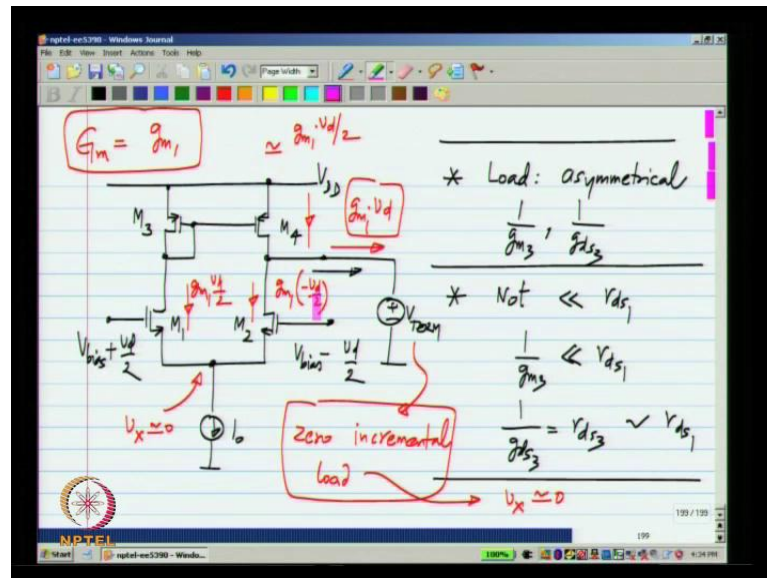 nptel-ee5390 - Windows Journal
File Edit View Insert Actions Tools Help
Page Width
B I
Gm = gm1
≃ gm1·vd/2
VDD
M3
M4
gm1·vd
M1
gm1 vd/2
M2
gm1(-vd/2)
Vbias + vd/2
Vbias - vd/2
VTERM
vx ≃ 0
I0
zero incremental
load
vx ≃ 0
* Load: asymmetrical
1/gm3, 1/gds3
* Not << rds1
1/gm3 << rds1
1/gds3 = rds3 ~ rds1
199/199
199
NPTEL
Start
nptel-ee5390 - Windo...
100%
4:34 PM